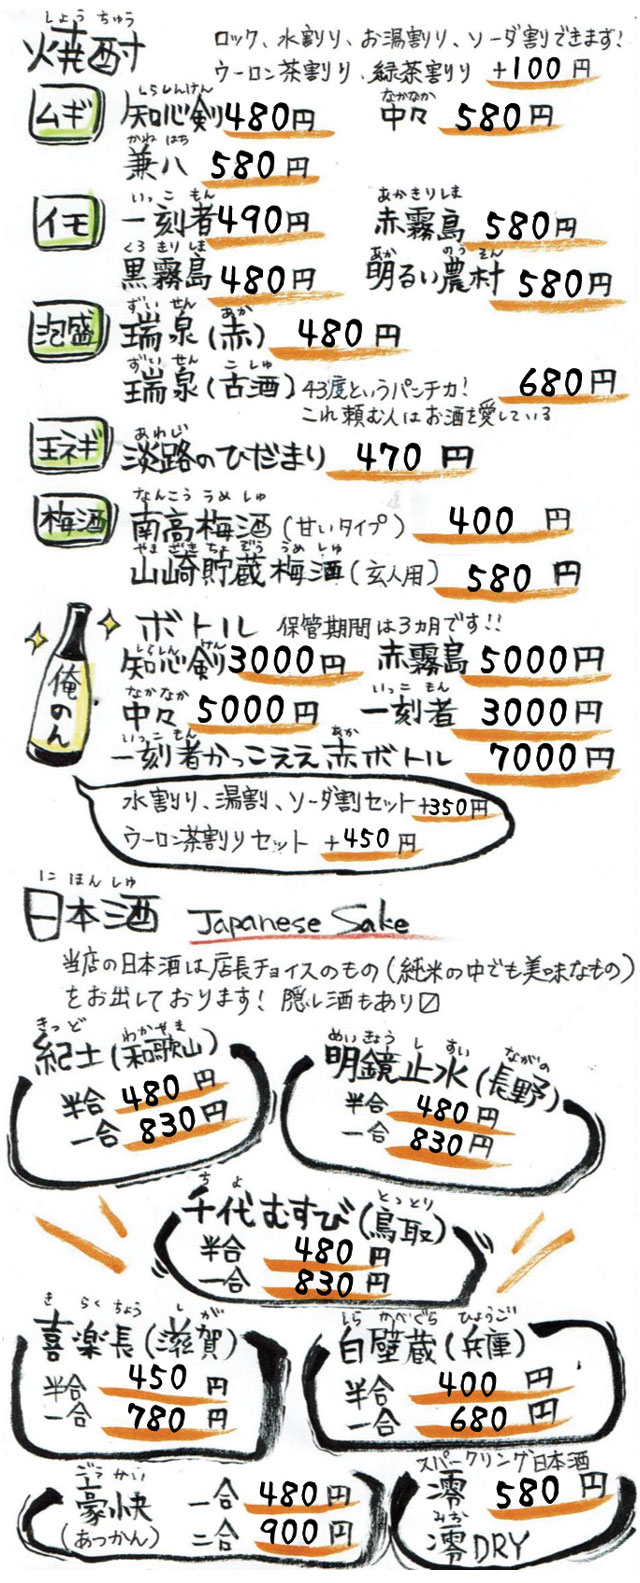 しょうちゅう
焼酎
ロック、水割り、お湯割り、ソーダ割りできます!
ウーロン茶割り、緑茶割り +100円
しらしんけん なかなか
ムギ 知心剣 480円 中々 580円
かね はち
兼八 580円
いっこ もん あかきりしま
イモ 一刻者 490円 赤霧島 580円
くろ きり しま あか のう そん
黒霧島 480円 明るい農村 580円
ずい せん あか
泡盛 瑞泉(赤) 480円
ずい せん こ しゅ
瑞泉(古酒) 43度というパンチ力! 680円
これ頼む人はお酒を愛している
あわじ
玉ネギ 淡路のひだまり 470円
なんこう うめ しゅ
梅酒 南高梅酒(甘いタイプ) 400円
やま ざき ちょ ぞう うめ しゅ
山崎貯蔵梅酒(玄人用) 580円
俺のん
ボトル 保管期間は3カ月です!!
しらしん けん
知心剣 3000円 赤霧島 5000円
なかなか いっこ もん
中々 5000円 一刻者 3000円
いっこ もん あか
一刻者かっこええ赤ボトル 7000円
水割り、湯割、ソーダ割セット+350円
ウーロン茶割りセット +450円
に ほん しゅ
日本酒 Japanese Sake
当店の日本酒は店長チョイスのもの(純米の中でも美味なもの)
をお出しております! 隠し酒もあり〼
きっど わかやま
紀土(和歌山)
半合 480円
一合 830円
めい きょう し すい ながの
明鏡止水(長野)
半合 480円
一合 830円
ちよ とっとり
千代むすび(鳥取)
半合 480円
一合 830円
き らく ちょう し が
喜楽長(滋賀)
半合 450円
一合 780円
しら かべぐら ひょうご
白壁蔵(兵庫)
半合 400円
一合 680円
ごう かい
豪快 一合 480円
(あっかん) 二合 900円
スパークリング日本酒
澪 580円
みお
澪DRY